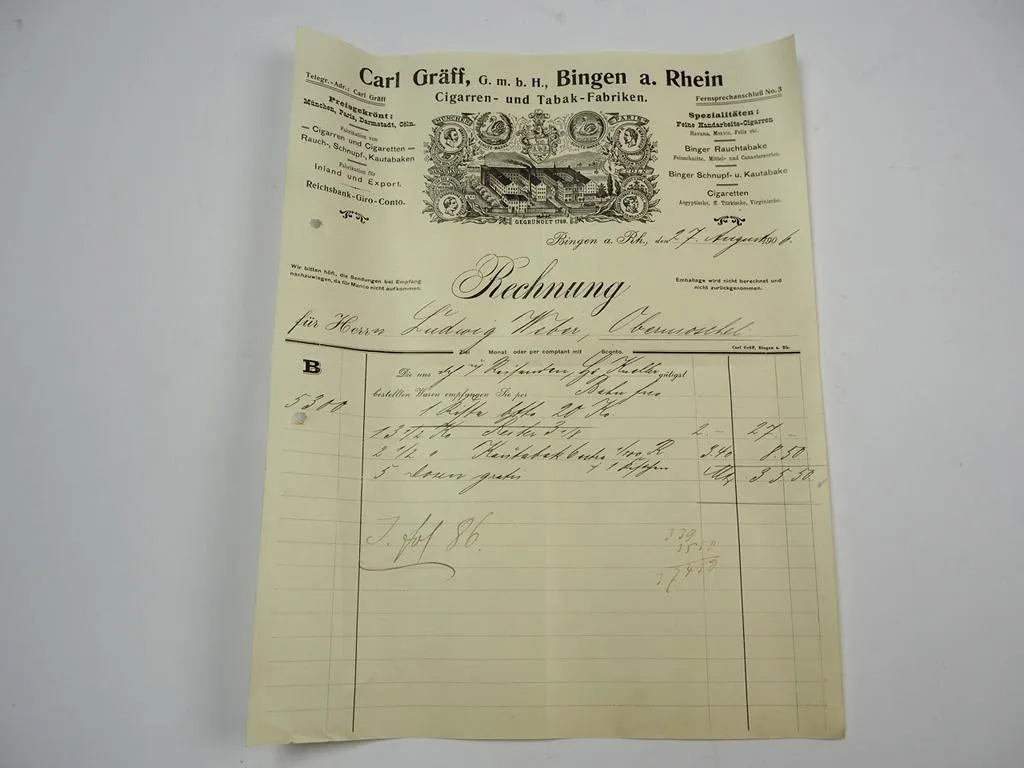 Carl Gräff, G. m. b. H., Bingen a. Rhein
Cigarren- und Tabak-Fabriken.
Telegr.-Adr.: Carl Gräff
Fernsprechanschluß No. 3
Preisgekrönt:
München, Paris, Darmstadt, Cöln.
Fabrikation von
— Cigarren und Cigaretten —
Rauch-, Schnupf-, Kautabaken
Fabrikation für
Inland und Export.
Reichsbank-Giro-Conto.
MÜNCHEN
PARIS
GEGRÜNDET 1768
Spezialitäten:
Feine Handarbeits-Cigarren
Havana, Mexico, Felix etc.
Binger Rauchtabake
Feinschnitte, Mittel- und Canastersorten.
Binger Schnupf- u. Kautabake
Cigaretten
Aegyptische, ff. Türkische, Virginische.
Bingen a. Rh., den 27. August 1906.
Wir bitten höfl., die Sendungen bei Empfang
nachzuwiegen, da für Manco nicht aufkommen.
Rechnung
Emballage wird nicht berechnet und
nicht zurückgenommen.
für Herrn Ludwig Weber, Obermoschel
Carl Gräff, Bingen a. Rh.
Ziel Monat oder per comptant mit Sconto.
B
Die uns Reisenden, gütigst
bestellten Waren empfangen Sie per Bahn
5300
1 Kiste btto 20 Ko
13 1/2 Ko 2.- 27.-
2 1/2 " Kautabak 3.40 8.50
5 Dosen gratis Mk 35.50
fol 86.
339
3550
37450